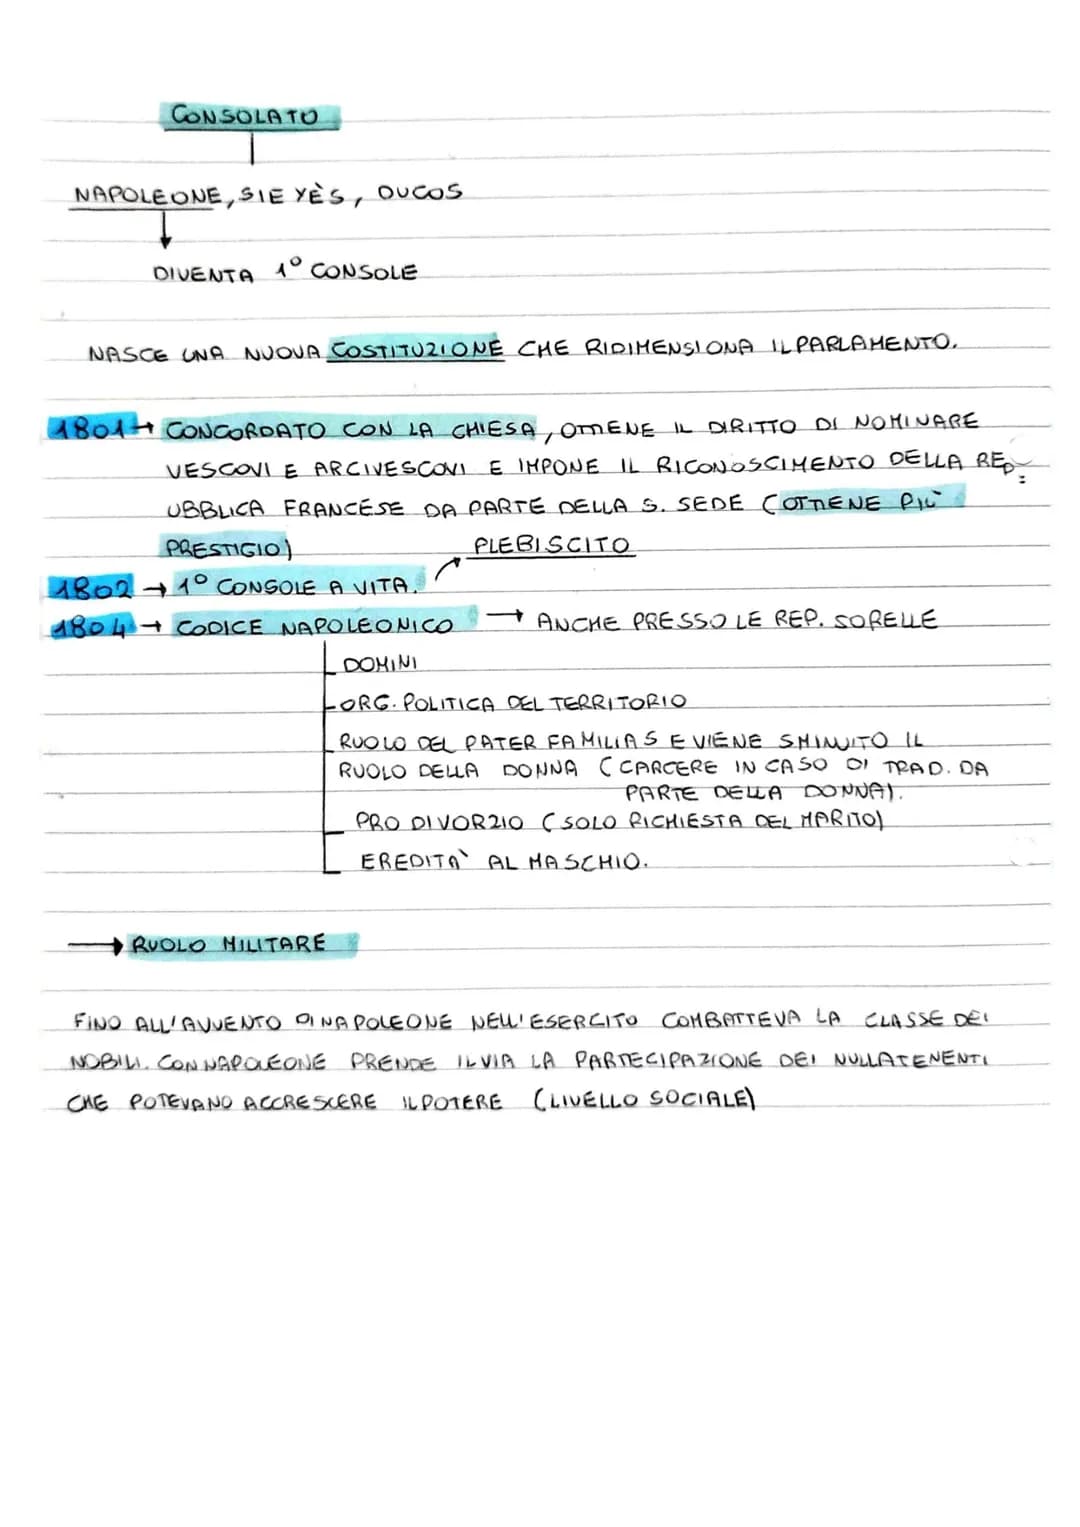 CONSOLATO
NAPOLEONE, SIEYÈS, DUCOS
DIVENTA 1° CONSOLE
NASCE UNA NUOVA COSTITUZIONE CHE RIDIMENSIONA IL PARLAMENTO.
1801 → CONCORDATO CON LA CHIESA, OTTIENE IL DIRITTO DI NOMINARE
VESCOVI E ARCIVESCOVI E IMPONE IL RICONOSCIMENTO DELLA REP
UBBLICA FRANCESE DA PARTE DELLA S. SEDE (OTTIENE PIÙ
PRESTIGIO)
PLEBISCITO
1802 → 1° CONSOLE A VITA.
1804 → CODICE NAPOLEONICO → ANCHE PRESSO LE REP. SORELLE
DOMINI
ORG. POLITICA DEL TERRITORIO
RUOLO DEL PATER FAMILIAS E VIENE SMINUITO IL
RUOLO DELLA DONNA (CARCERE IN CASO DI TRAD. DA
PARTE DELLA DONNA).
PRO DIVORZIO (SOLO RICHIESTA DEL MARITO)
EREDITA' AL MASCHIO.
→ RUOLO MILITARE
FINO ALL'AVVENTO DI NAPOLEONE NELL'ESERCITO COMBATTEVA LA CLASSE DEI
NOBILI. CON NAPOLEONE PRENDE IL VIA LA PARTECIPAZIONE DEI NULLATENENTI
CHE POTEVANO ACCRESCERE IL POTERE (LIVELLO SOCIALE)